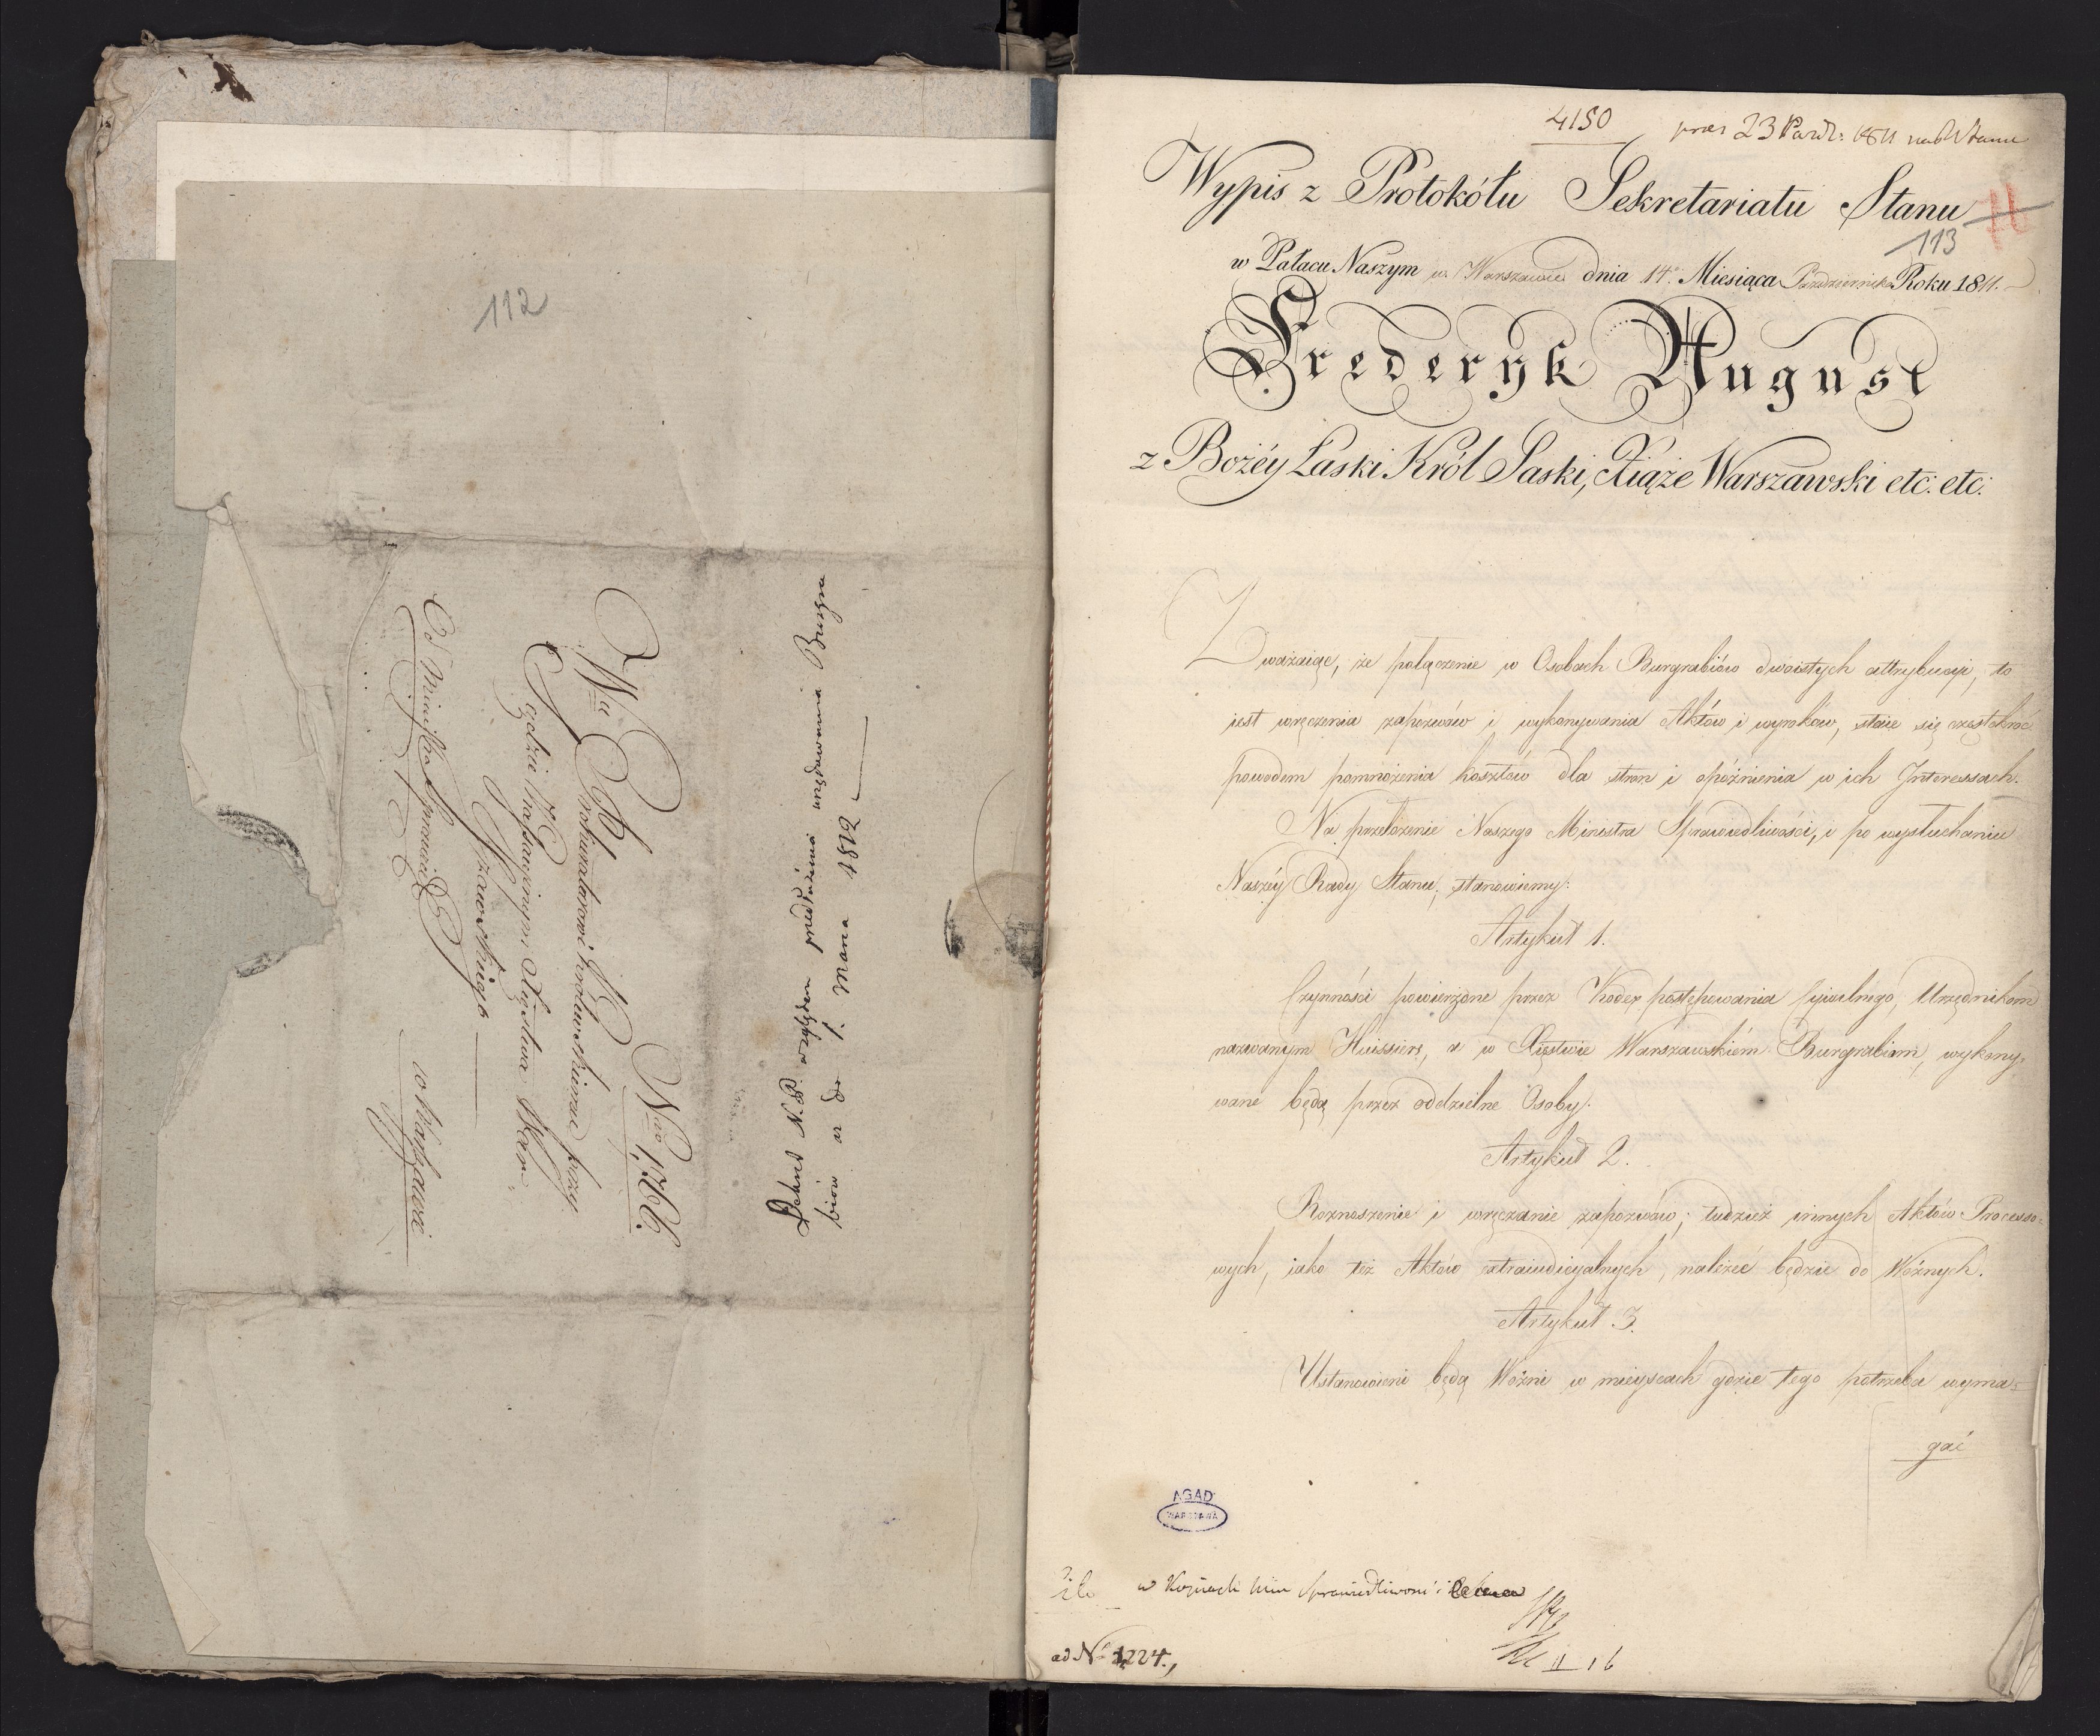 112
Dekret N. P. względem przedłużenia urzędowania Burgra
biów aż do 1. Marca 1812
Wu Prokuratorowi Królewskiemu przy
Sądzie Kassacyinym Xięstwa War
szawskiego
Od Ministra Sprawiedl
w Warszawie
Nro 1,766.
4150
prez 23 Paźdz: 1811 na Stanu
Wypis z Protokółu Sekretariatu Stanu
11
113
w Pałacu Naszym w Warszawie dnia 14o Miesiąca Października Roku 1811.
Fryderyk August
z Bożéy Łaski Król Saski, Xiąże Warszawski etc: etc:
Zważaiąc, że połączenie w Osobach Burgrabiów dwoistych attrybucyi, to
iest wręczenia zapozwów i wykonywania Aktów i wyroków, staie się częstokroć
powodem pomnożenia kosztów dla stron i opóźnienia w ich Interessach.
Na przełożenie Naszego Ministra Sprawiedliwości, i po wysłuchaniu
Naszéy Rady Stanu, stanowiemy:
Artykuł 1.
Czynności powierzone przez Kodex postępowania Cywilnego, Urzędnikom
nazwanym Huissiers, a w Xięstwie Warszawskiém Burgrabiom, wykony,
wane będą przez oddzielne Osoby.
Artykuł 2.
Roznoszenie i wręczanie zapozwów, tudzież innych Aktów Processo:
wych, iako też Aktów extraiudicyalnych, należeć będzie do Woźnych.
Artykuł 3.
Ustanowieni będą Woźni w mieyscach gdzie tego potrzeba wyma:
gać
AGAD
WARSZAWA
w Min Sprawiedliwości i
ad No 1224.,
II 16